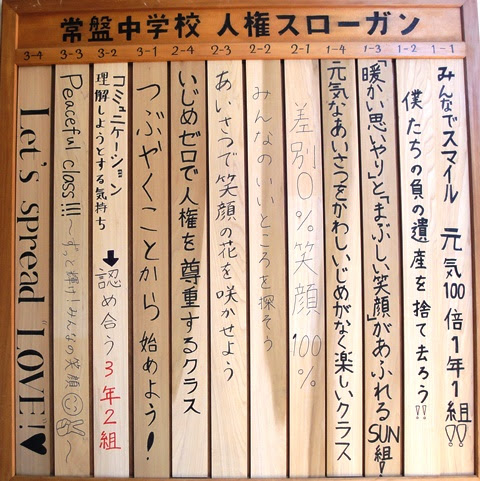 常盤中学校 人権スローガン
1-1
みんなでスマイル 元気100倍1年1組!!
1-2
僕たちの負の遺産を捨て去ろう!!
1-3
「暖かい思いやり」と「まぶしい笑顔」があふれるSUN組!
1-4
元気なあいさつをかわしいじめがなく楽しいクラス
2-1
差別0%笑顔100%
2-2
みんなのいいところを探そう
2-3
あいさつで笑顔の花を咲かせよう
2-4
いじめゼロで人権を尊重するクラス
3-1
つぶやくことから始めよう!
3-2
コミュニケーション
理解しようとする気持ち
➡認め合う3年2組
3-3
Peaceful class!!! ~ずっと輝け!みんなの笑顔~
3-4
Let's spread LOVE!♥